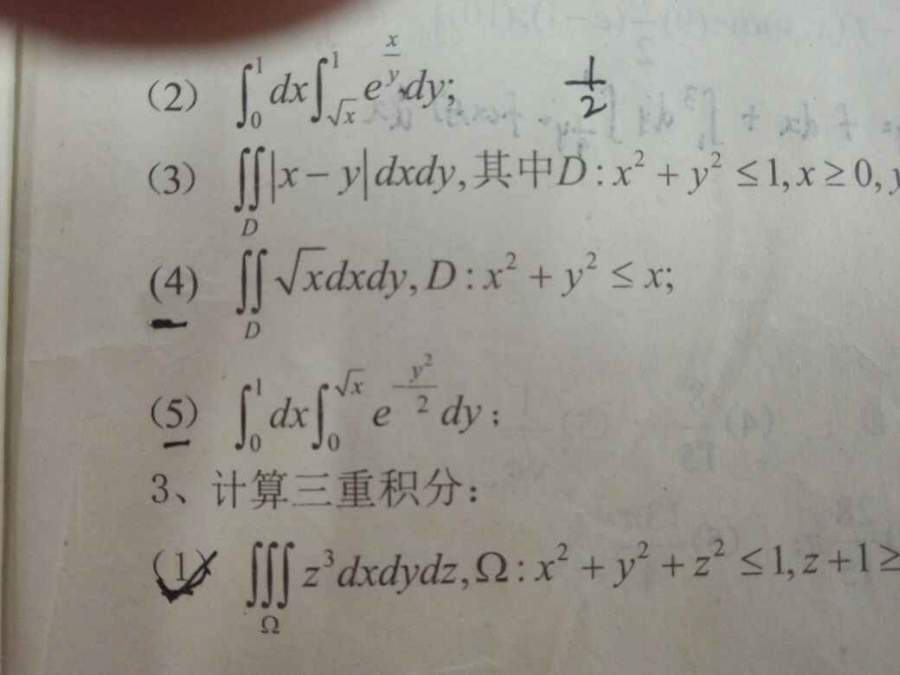 (2) ∫₀¹dx∫_{√x}^{1} e^{x/y}dy; 1/2
(3) ∬_D |x−y|dxdy,其中D:x²+y²≤1,x≥0,
(4) ∬_D √xdxdy,D:x²+y²≤x;
(5) ∫₀¹dx∫₀^{√x} e^{−y²/2}dy;
3、计算三重积分:
(1) ∭_Ω z³dxdydz,Ω:x²+y²+z²≤1,z+1≥